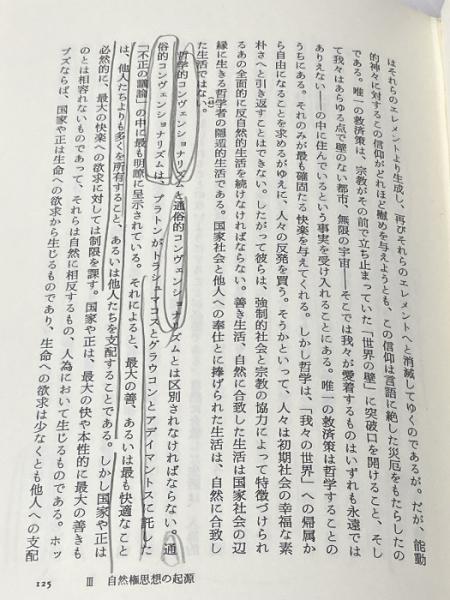 はそれらのエレメントより生成し、再びそれらのエレメントへと消滅してゆくのであるが。だが、能動
的神々に対するこの信仰がどれほど慰めを与えようとも、この信仰は言語に絶した災厄をもたらしたの
である。唯一の救済策は、宗教がその前で立ち止まっていた「世界の壁」に突破口を開けること、そし
て我々はあらゆる点で壁のない都市、無限の宇宙――そこでは我々が愛着するものはいずれも永遠では
ありえない――の中に住んでいるという事実を受け入れることにある。唯一の救済策は哲学することの
うちにある。それのみが最も確固たる快楽を与えてくれる。しかし哲学は、「我々の世界」への帰属か
ら自由になることを求めるがゆえに、人々の反発を買う。そうかといって、人々は初期社会の幸福な素
朴さへと引き返すことはできない。したがって彼らは、強制的社会と宗教の協力によって特徴づけられ
るあの全面的に反自然的生活を続けなければならない。善き生活、自然に合致した生活は国家社会の辺
縁に生きる哲学者の隠遁的生活である。国家社会と他人への奉仕とに捧げられた生活は、自然に合致し
た生活ではない。
哲学的コンヴェンショナリズムと通俗的コンヴェンショナリズムとは区別されなければならない。通
俗的コンヴェンショナリズムは、プラトンがトラシュマコスとグラウコンとアデイマントスに託した
「不正の議論」の中に最も明瞭に呈示されている。それによると、最大の善、あるいは最も快適なこと
は、他人たちよりも多くを所有すること、あるいは他人たちを支配することである。しかし国家や正は
必然的に、最大の快楽への欲求に対しては制限を課す。国家や正は、最大の快や本性的に最大の善きも
のとは相容れないものであって、それらは自然に相反するもの、人為において生じるものである。ホッ
ブズならば、国家や正は生命への欲求から生じるものであり、生命への欲求は少なくとも他人への支配
125 Ⅲ 自然権思想の起源